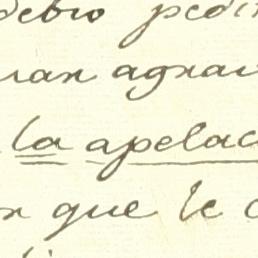 debio pedir
ran agrav
la apelac
n que le c